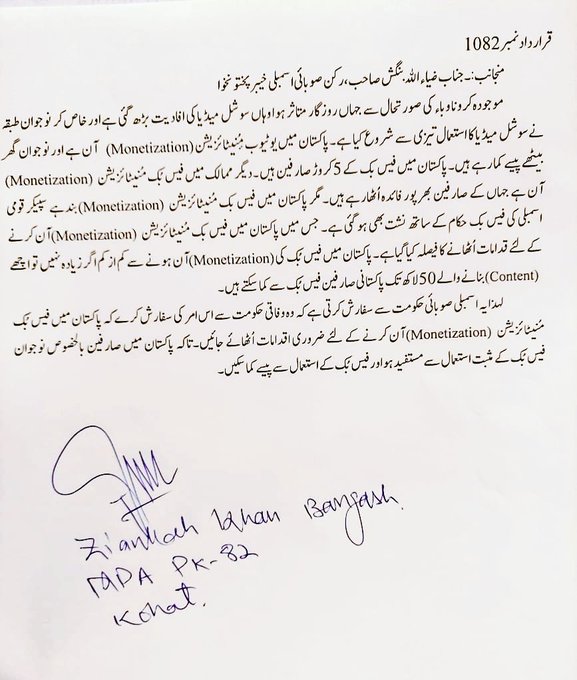 قرارداد نمبر 1082
منجانب:۔ جناب ضیاء اللہ بنگش صاحب، رکن صوبائی اسمبلی خیبر پختونخوا
موجودہ کروناوباء کی صورتحال سے جہاں روزگار متاثر ہوا وہاں سوشل میڈیا کی افادیت بڑھ گئی ہے اور خاص کر نوجوان طبقہ
نے سوشل میڈیا کا استعمال تیزی سے شروع کیا ہے۔ پاکستان میں یوٹیوب مُنیٹائزیشن (Monetization) آن ہے اور نوجوان گھر
بیٹھے پیسے کمارہے ہیں۔ پاکستان میں فیس بک کے 5 کروڑ صارفین ہیں۔ دیگر ممالک میں فیس بُک مُنیٹائزیشن (Monetization)
آن ہے جہاں کے صارفین بھر پور فائدہ اُٹھارہے ہیں۔ مگر پاکستان میں فیس بک مُنیٹائزیشن (Monetization) بند ہے سپیکر قومی
اسمبلی کی فیس بک حکام کے ساتھ نشت بھی ہوگئی ہے۔ جس میں پاکستان میں فیس بک مُنیٹائزیشن (Monetization) آن کرنے
کے لئے قدامات اُٹھانے کا فیصلہ کیا گیا ہے۔ پاکستان میں فیس بُک کی (Monetization) آن ہونے سے کم از کم اگر زیادہ نہیں تو اچھے
(Content) بنانے والے 50 لاکھ تک پاکستانی صارفین فیس بک سے کما سکتے ہیں۔
لہذا یہ اسمبلی صوبائی حکومت سے سفارش کرتی ہے کہ وہ وفاقی حکومت سے اس امر کی سفارش کرے کہ پاکستان میں فیس بُک
مُنیٹائزیشن (Monetization) آن کرنے کے لئے ضروری اقدامات اُٹھائے جائیں۔ تاکہ پاکستان میں صارفین بالخصوص نوجوان
فیس بُک کے مثبت استعمال سے مستفید ہو اور فیس بُک کے استعمال سے پیسے کما سکیں۔
Ziaullah Khan Bangash.
MPA PK-82
Kohat.